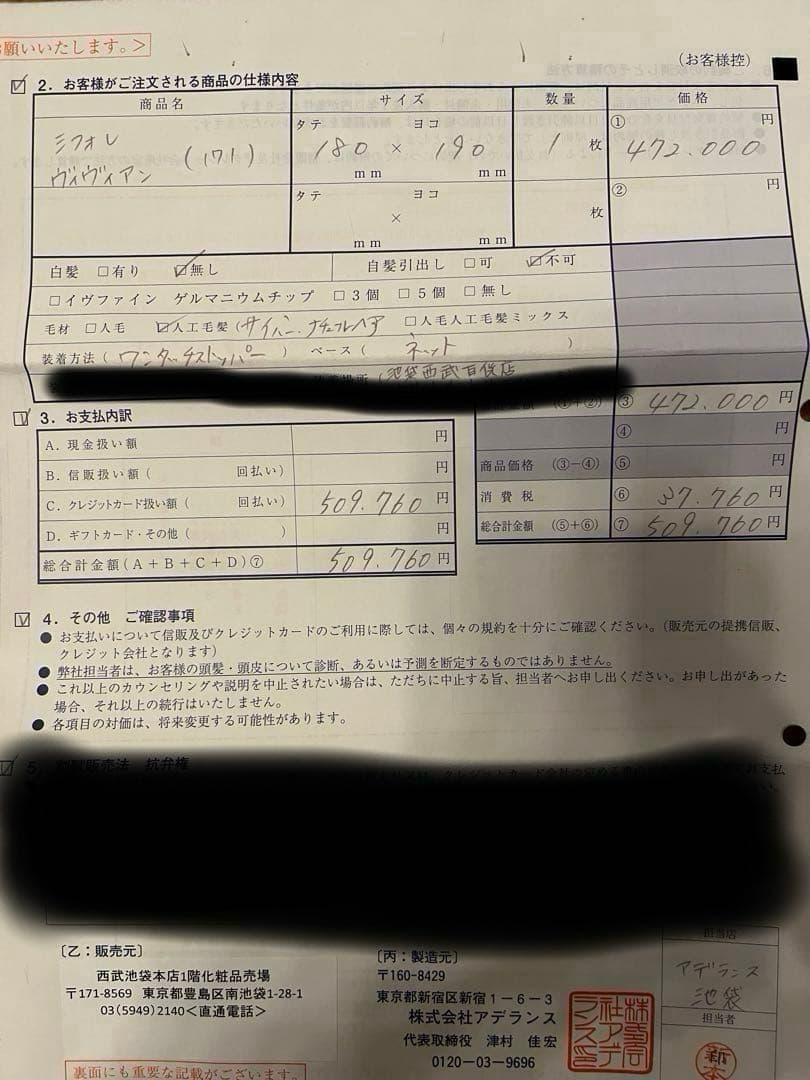 お願いいたします。>
(お客様控)
2. お客様がご注文される商品の仕様内容
商品名 サイズ 数量 価格
ミフォレ
ヴィヴィアン (171)
タテ ヨコ
180 × 190
mm mm
1 枚
① 円
472.000
タテ ヨコ
×
mm mm
枚
② 円
白髪 □有り ☑無し 自髪引出し □可 ☑不可
□イヴファイン ゲルマニウムチップ □3個 □5個 □無し
毛材 □人毛 ☑人工毛髪(サイバー.ナチュラルヘア □人毛人工毛髪ミックス
装着方法(ワンタッチストッパー) ベース( ネット )
(池袋西武百貨店
(①+②) ③ 472.000 円
④ 円
商品価格 (③−④) ⑤ 円
消費税 ⑥ 37.760 円
総合計金額 (⑤+⑥) ⑦ 509.760 円
3. お支払内訳
A. 現金扱い額 円
B. 信販扱い額( 回払い) 円
C. クレジットカード扱い額( 回払い) 509.760 円
D. ギフトカード・その他( ) 円
総合計金額(A+B+C+D)⑦ 509.760 円
4. その他 ご確認事項
● お支払いについて信販及びクレジットカードのご利用に際しては、個々の規約を十分にご確認ください。(販売元の提携信販、
クレジット会社となります)
● 弊社担当者は、お客様の頭髪・頭皮について診断、あるいは予測を断定するものではありません。
● これ以上のカウンセリングや説明を中止されたい場合は、ただちに中止する旨、担当者へお申し出ください。お申し出があった
場合、それ以上の続行はいたしません。
● 各項目の対価は、将来変更する可能性があります。
5. 割賦販売法 抗弁権
〔乙:販売元〕
西武池袋本店1階化粧品売場
〒171-8569 東京都豊島区南池袋1-28-1
03(5949)2140<直通電話>
裏面にも重要な記載がございます。
〔丙:製造元〕
〒160-8429
東京都新宿区新宿1−6−3
株式会社アデランス
代表取締役 津村 佳宏
0120−03−9696
株式会社アデランス
担当店
アデランス
池袋
担当者